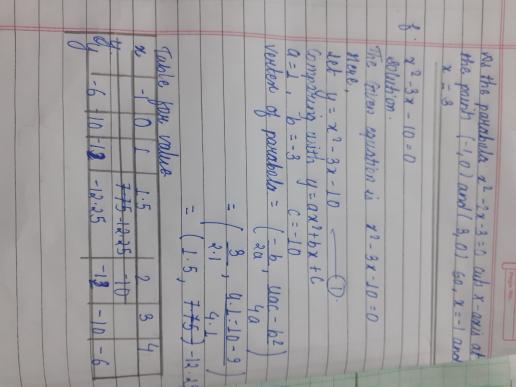 As the parabola x² -2x-3=0 cuts x-axis at
the point (-1,0) and (3,0) so, x=-1 and
x = 3
f. x²-3x-10=0
Solution.
The given equation is x²-3x-10=0
Here,
Let y = x²-3x-10 ①
Comparing with y=ax²+bx+c
a=1, b=-3 c=-10
vertex of parabola = (-b/2a, 4ac-b²/4a)
= (3/2·1, 4·1-10-9/4·1)
= (1.5, 7.75) -12.25
Table for value
x -1 0 1 1.5 2 3 4
y 7.75 -12.25 -10
y -6 -10 -12 -12.25 -12 -10 -6